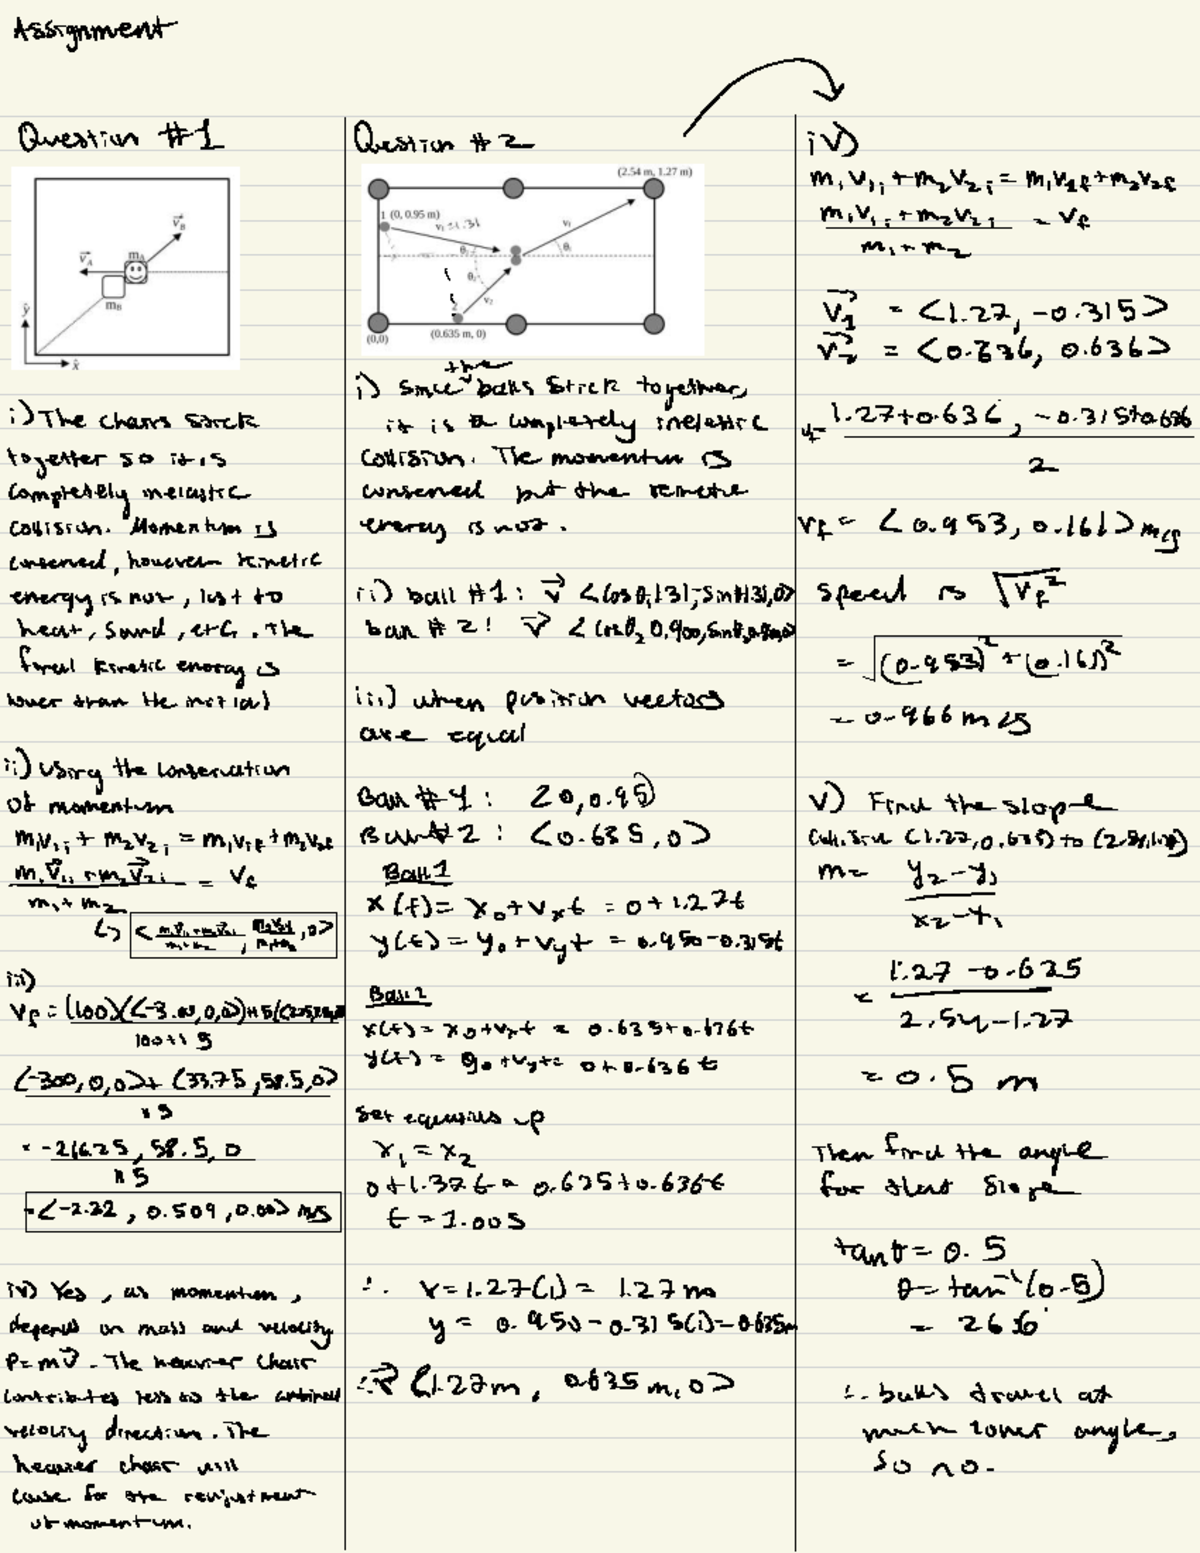 Assignment
Question #1
v_B
v_A
m_A
m_B
ŷ
x̂
i) The chairs stick
together so it is
completely inelastic
collision. Momentum is
conserved, however kinetic
energy is not, lost to
heat, sound, etc. The
final kinetic energy is
lower than the initial
ii) Using the conservation
of momentum
m₁v₁i + m₂v₂i = m₁v₁f + m₂v₂f
m₁v₁i + m₂v₂i = vf
m₁ + m₂
iii)
Vf = (100)(<-3.00,0,0>)
(-300,0,0) + (33.75, 58.5, 0)
115
58.5, 0
115
= <-2.22, 0.509, 0.00> m/s
iv) Yes, as momentum,
depends on mass and velocity
P = mv. The heavier chair
contributes less to the combined
velocity direction. The
heavier chair will
cause for the readjustment
of momentum.
Question #2
(2.54 m, 1.27 m)
1 (0, 0.95 m)
v₁ = 1.31
v_f
θ₁
θ_f
θ₂
v₂
2
(0,0)
(0.635 m, 0)
i) Since the balls stick together,
it is a completely inelastic
collision. The momentum is
conserved but the kinetic
energy is not.
ii) ball #1: v <cosθ₁1.31,
ball #2: v <cosθ₂0.900,
iii) when position vectors
are equal
Ball #1: <0, 0.95>
Ball #2: <0.635, 0>
Ball 1
x(t) = x₀ + vₓt = 0 + 1.27t
y(t) = y₀ + v_yt = 0.950 - 0.315t
Ball 2
x(t) = x₀ + vₓt = 0.635 + 0.636t
y(t) = y₀ + v_yt = 0 + 0.636t
Set equations up
x₁ = x₂
0.635 + 0.636t
t = 1.00s
∴ x = 1.27(1) = 1.27m
y = 0.950 - 0.315(1) = 0.635m
∴ r <1.27m, 0.635m, 0>
iv)
m₁v₁i + m₂v₂i = m₁v₁f + m₂v₂f
m₁v₁i + m₂v₂i = vf
m₁ + m₂
v₁ = <1.27, -0.315>
v₂ = <0.636, 0.636>
1.27+0.636, -0.315+0.636
2
vf = <0.953, 0.161> m/s
speed is √vf²
= √(0.953)² + (0.161)²
= 0.966 m/s
v) Find the slope
collision (1.27, 0.635) to (2.54, 1.27)
m = y₂ - y₁
x₂ - x₁
= 1.27 - 0.635
2.54 - 1.27
= 0.5 m
Then find the angle
for that slope
tan θ = 0.5
θ = tan⁻¹(0.5)
= 26.6°
∴ balls travel at
much lower angle,
so no.